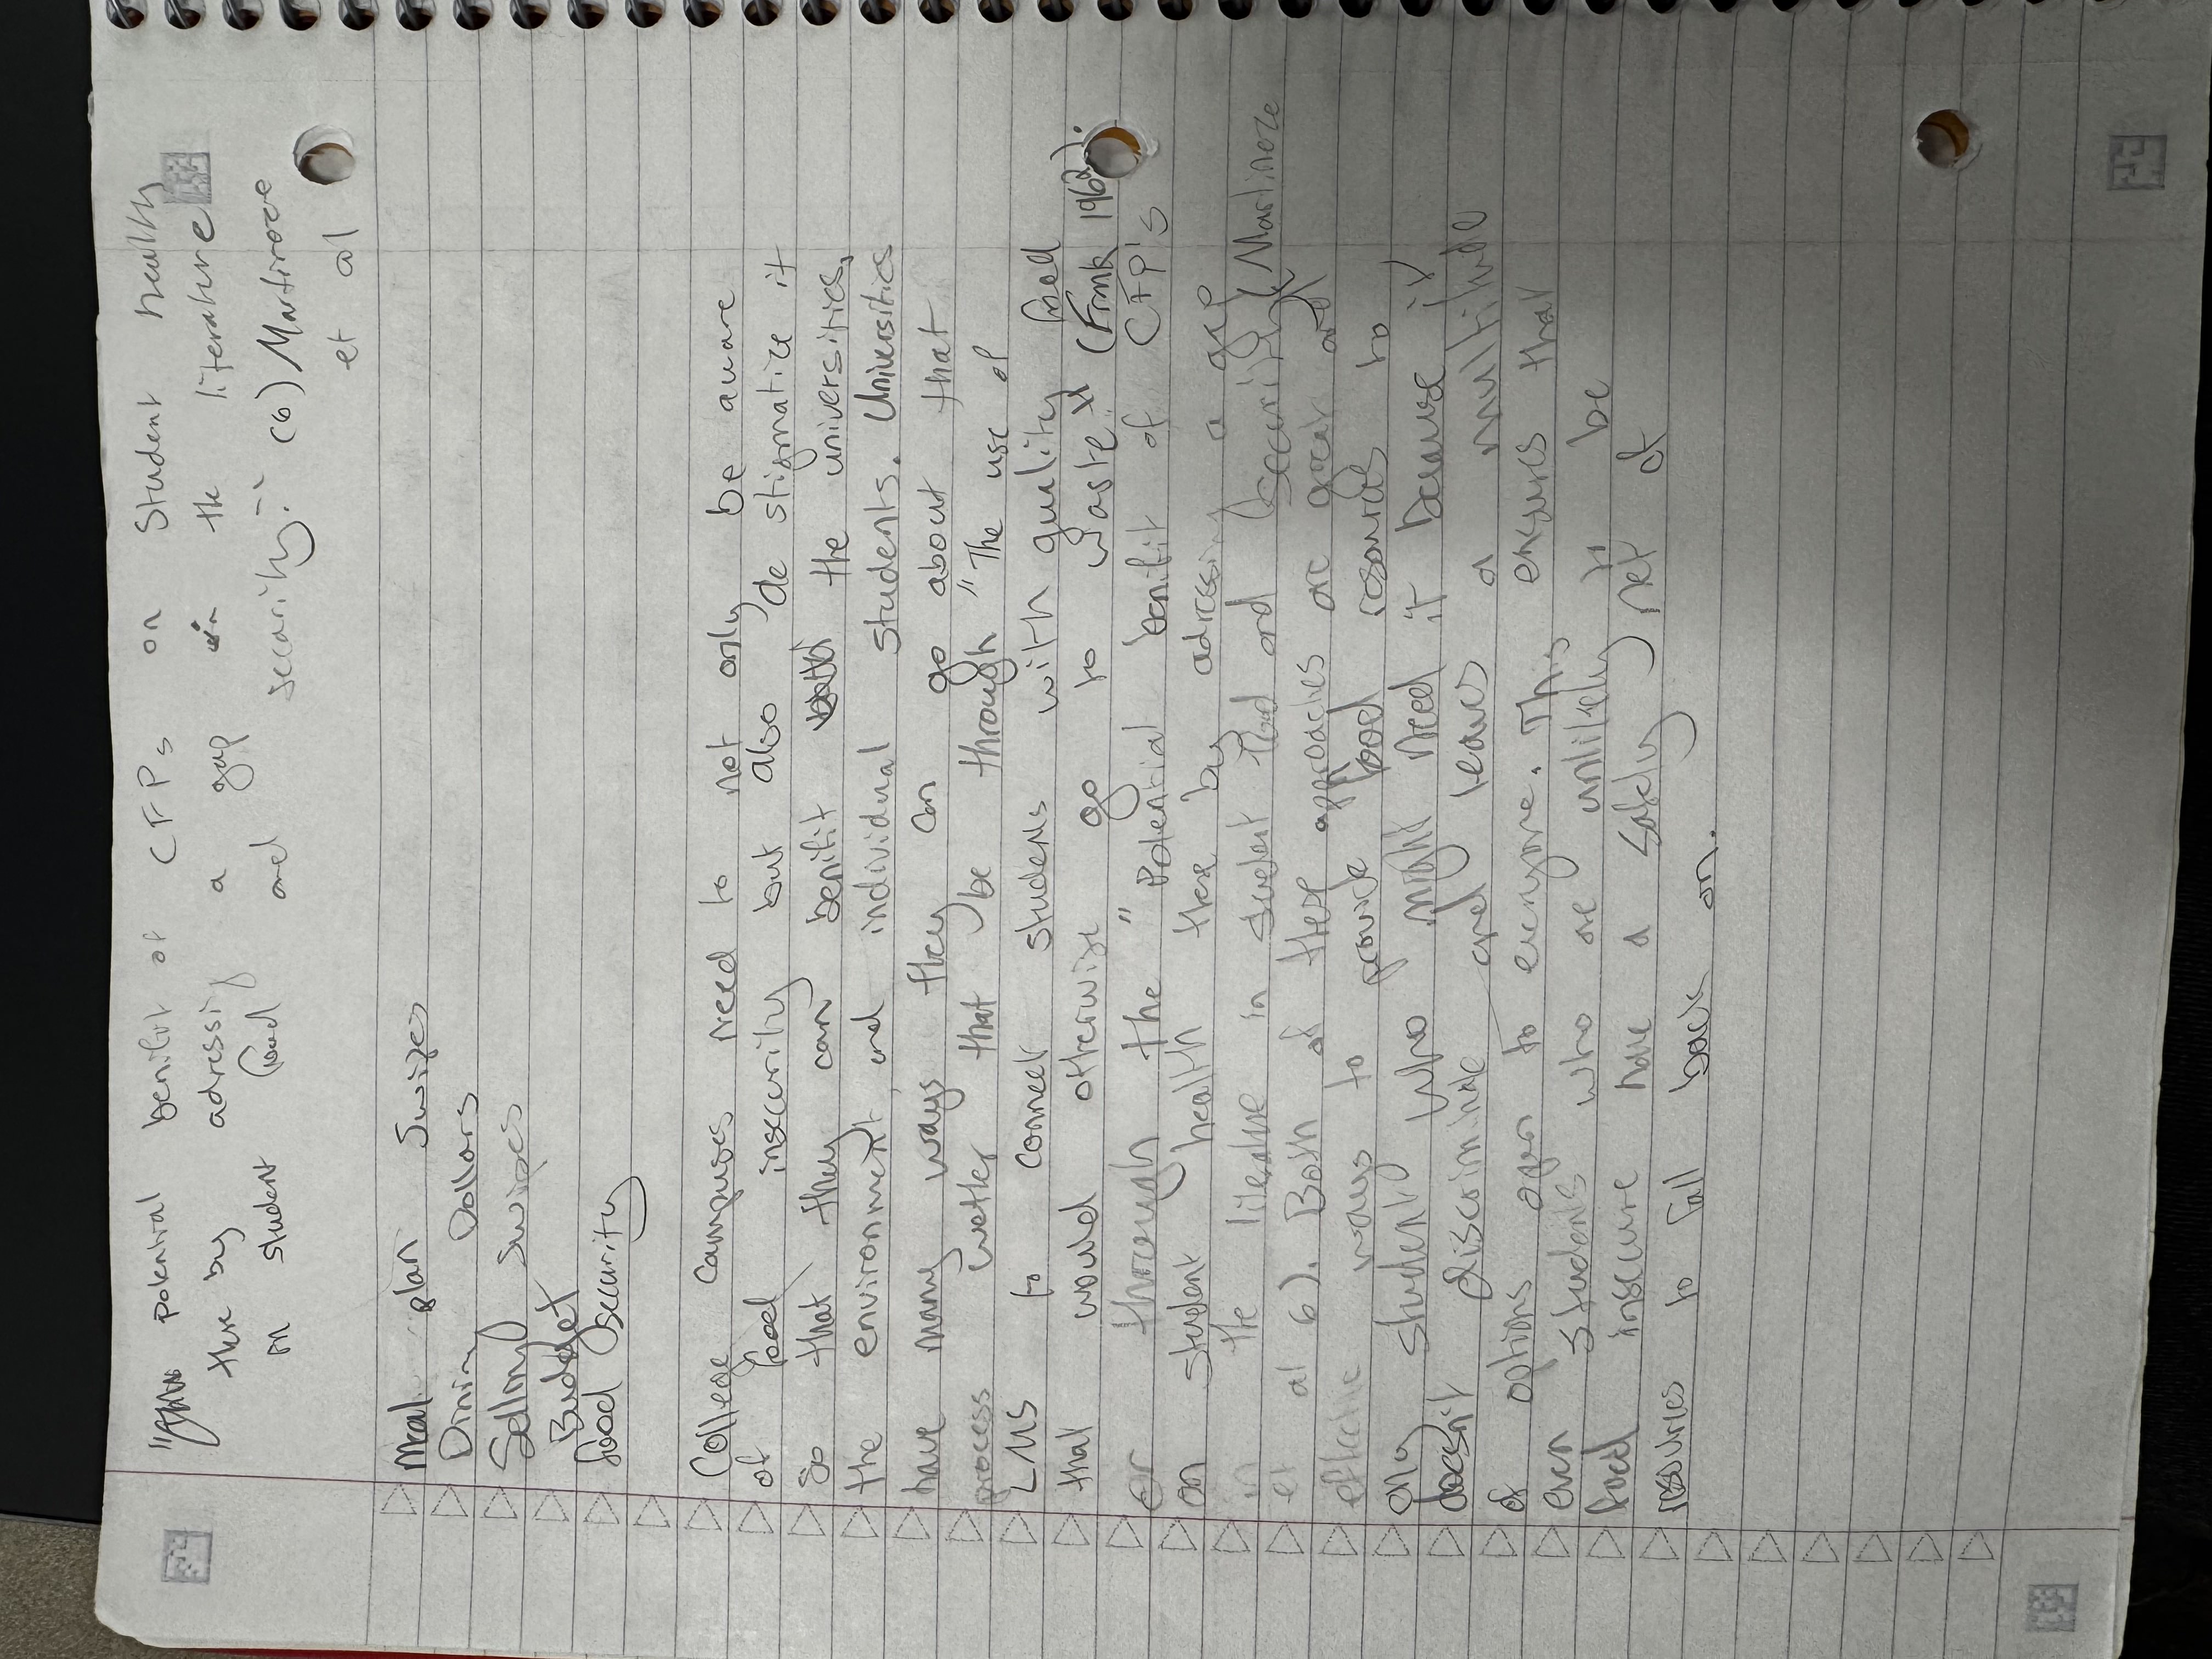 "potential benifit of CFPs on student health
there by adressing a gap in the literature
on student food and security." (6) Martineze
et al
Meal plan Swipes
Dining Dollars
Selling swipes
Budget
food security
College campuses need to not only be aware
of food insecurity but also de stigmatize it
so that they can benifit the universities,
the environment, and individual students. Universities
have many ways they can go about that
process wether that be through "The use of
LMS to connect students with quality food
that would otherwise go to waste" (Frank 1962).
Or through the "Potential benifit of CFP's
on student health there by adressing a gap
in the literature in student food and security" (Martineze
et al 6). Both of these approaches are great and
effective ways to provide food resources to
any students who might need it because it
doesn't discriminate and leaves a multitude
of options open to everyone. This ensures that
even students who are unlikely to be
food insecure have a safety net of
resources to fall back on.